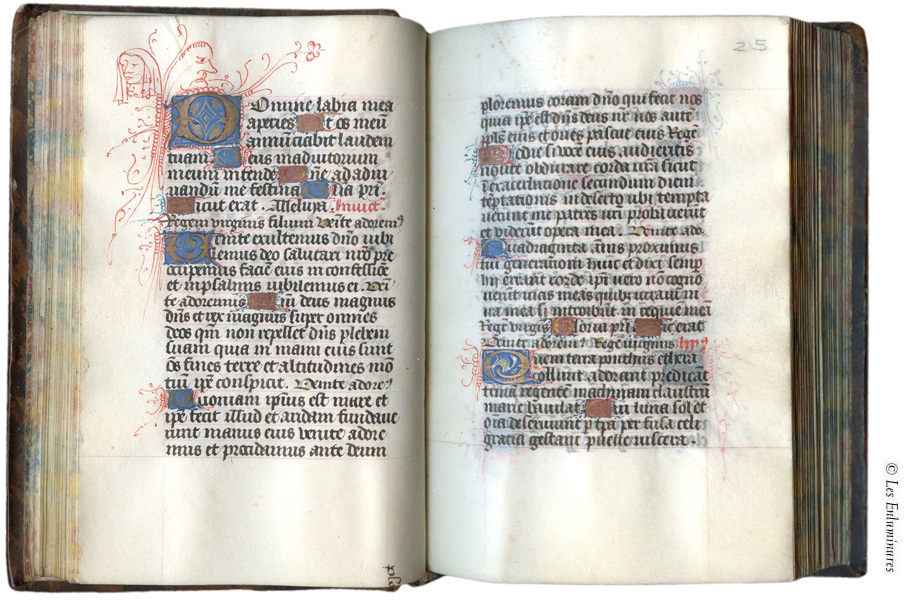 Omine labia mea
aperies t os meū
annunciabit laudem
tuam eus in adiutorium
meum intende ne ad adiu
uandū me festina lia pri
icut erat. Alleluya. Inuice.
Regem virginis filium Venite adorem
enite exultemus dn̄o iubi
lemus deo salutari nr̄o pre
occupemus faciē eius in confessiōe
et in psalmis iubilemus ei. Ven
te adoremus m̄ deus magnus
dn̄s et rex magnus super omnes
deos qm̄ non repellet dn̄s plebem
suam quia in manu eius sunt
ōs fines terre et altitudines mō
tiū ip̄e conspicit. Venite adore
uoniam ip̄ius est mare et
ip̄e fecit illud et aridam fundaue
runt manus eius venite adore
mus et procidamus ante deum
25
ploremus coram dn̄o qui fecit nos
quia ip̄e est dn̄s deus nr̄ nos autē
pp̄ls eius et oues pascue eius Regē
odie si vocē eius audieritis
nolite obdurare corda vr̄a sicut
in exacerbatione secundum diem
tēptationis in deserto ubi tempta
uerunt me patres vr̄i probauerūt
et viderūt opera mea. Venite ado.
Quadraginta ānis proximus
fui generationi huic et dixi semp̄
hii errant corde ip̄i vero nō cogno
uerūt vias meas quibꝫ iuraui in
ira mea si introibūt in requiē meā
Regē virgīs loria pr̄i icut erat
Venite adorem Regē virginis
uem terra ponthus ethera
colunt adorant predicāt
trinā regentē machinam claustrū
marie baiulat ui luna sol et
oīa deseruiunt p̄ tp̄a perfusa celi
gracia gestant puelle viscera.
© Les Enluminures